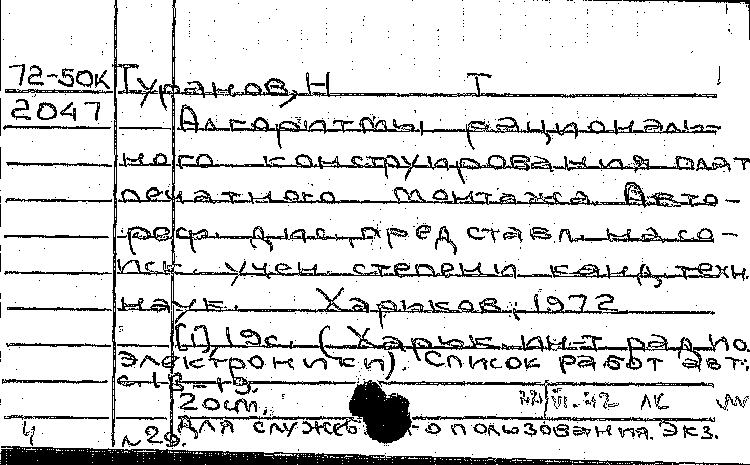 72-50к Туранов, Н Т
2047
Алгоритмы рациональ-
ного конструирования плат
печатного монтажа. Авто-
реф. дис., представл. на со-
иск. учен. степени канд. техн.
наук. Харьков, 1972
[1], 19с. (Харьк. ин-т радио
электроники). Список работ авт.:
с. 18-19.
20см.
Для служеб го пользования. Экз.
4 №29.